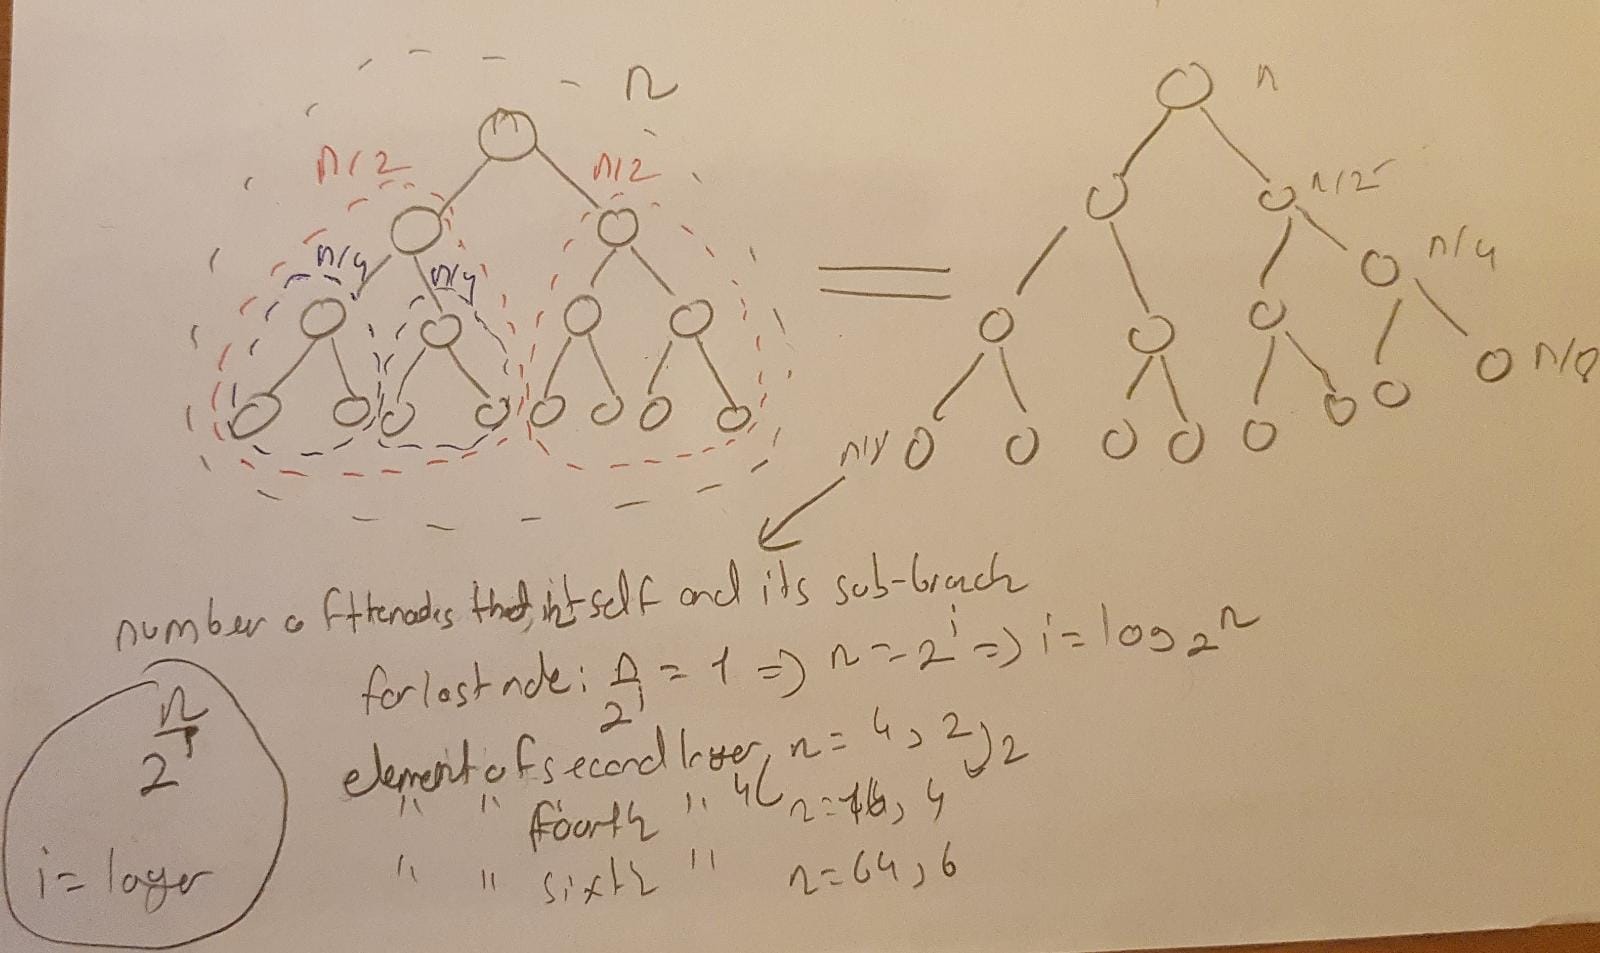 n
n
n
n/2
n/2
n/2
n/4
n/4
n/4
n/8
number of the nodes that, itself and its sub-branch
for last node: n/2^i = 1 => n = 2^i => i = log₂n
element of second layer, n = 4, 2
" " fourth " n=16, 4
" " sixth " n=64, 6
n/2^i
i = layer